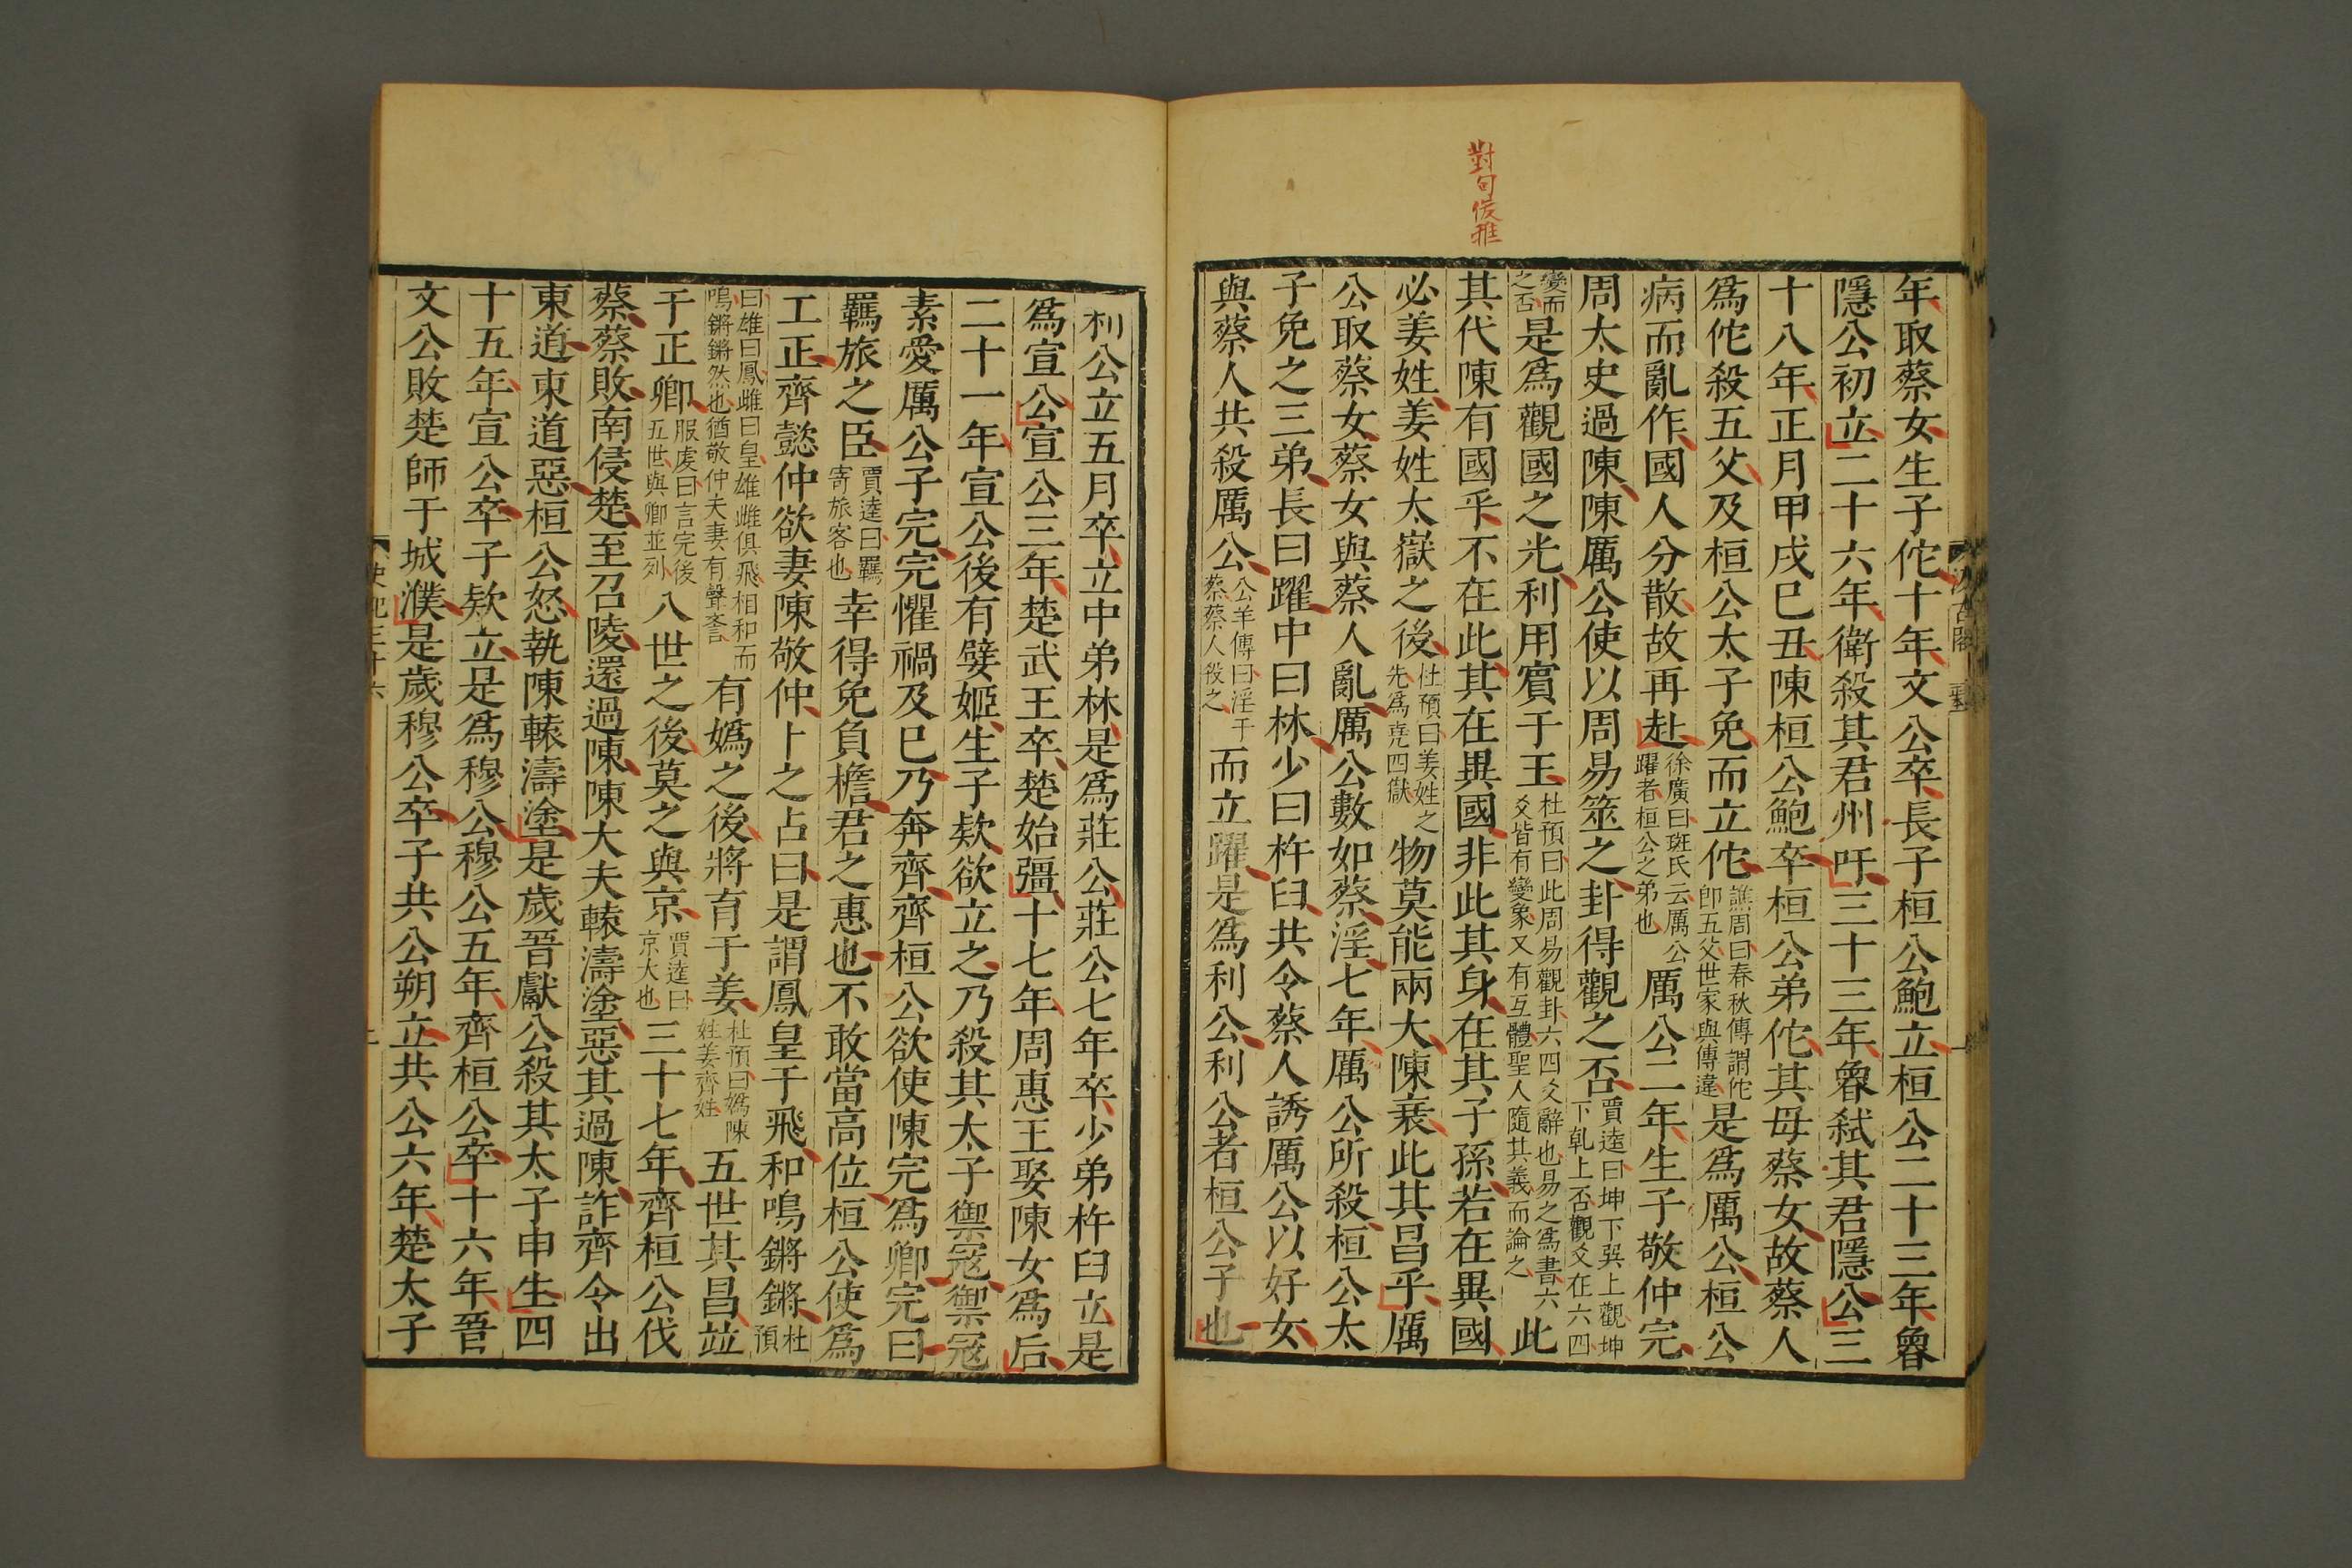 對句俊雅
年取蔡女生子佗十年文公卒長子桓公鮑立桓公二十三年魯
隱公初立二十六年衛殺其君州吁三十三年魯弒其君隱公三
十八年正月甲戌巳丑陳桓公鮑卒桓公弟佗其母蔡女故蔡人
爲佗殺五父及桓公太子免而立佗譙周曰春秋傳謂佗卽五父世家與傳違是爲厲公桓公
病而亂作國人分散故再赴徐廣曰班氏云厲公躍者桓公之弟也厲公二年生子敬仲完
周太史過陳陳厲公使以周易筮之卦得觀之否賈逵曰坤下巽上觀坤下乹上否觀爻在六四
變而之否是爲觀國之光利用賔于王杜預曰此周易觀卦六四爻辭也易之爲書六爻皆有變象又有互體聖人隨其義而論之此
其代陳有國乎不在此其在異國非此其身在其子孫若在異國
必姜姓姜姓太嶽之後杜預曰姜姓之先爲堯四嶽物莫能兩大陳衰此其昌乎厲
公取蔡女蔡女與蔡人亂厲公數如蔡淫七年厲公所殺桓公太
子免之三弟長曰躍中曰林少曰杵臼共令蔡人誘厲公以好女
與蔡人共殺厲公公羊傳曰淫于蔡蔡人殺之而立躍是爲利公利公者桓公子也
汲古閣
利公立五月卒立中弟林是爲莊公莊公七年卒少弟杵臼立是
爲宣公宣公三年楚武王卒楚始彊十七年周惠王娶陳女爲后
二十一年宣公後有嬖姬生子欵欲立之乃殺其太子禦寇禦寇
素愛厲公子完完懼禍及巳乃奔齊齊桓公欲使陳完爲卿完曰
羈旅之臣賈逵曰羈寄旅客也幸得免負檐君之惠也不敢當高位桓公使爲
工正齊懿仲欲妻陳敬仲卜之占曰是謂鳳皇于飛和鳴鏘鏘杜預
曰雄曰鳳雌曰皇雄雌俱飛相和而鳴鏘鏘然也猶敬仲夫妻有聲譽有嬀之後將育于姜杜預曰嬀陳姓姜齊姓五世其昌竝
于正卿服虔曰言完後五世與卿並列八世之後莫之與京賈逵曰京大也三十七年齊桓公伐
蔡蔡敗南侵楚至召陵還過陳陳大夫轅濤塗惡其過陳詐齊令出
東道東道惡桓公怒執陳轅濤塗是歲晉獻公殺其太子申生四
十五年宣公卒子欵立是爲穆公穆公五年齊桓公卒十六年晉
文公敗楚師于城濮是歲穆公卒子共公朔立共公六年楚太子
史記三十六
二